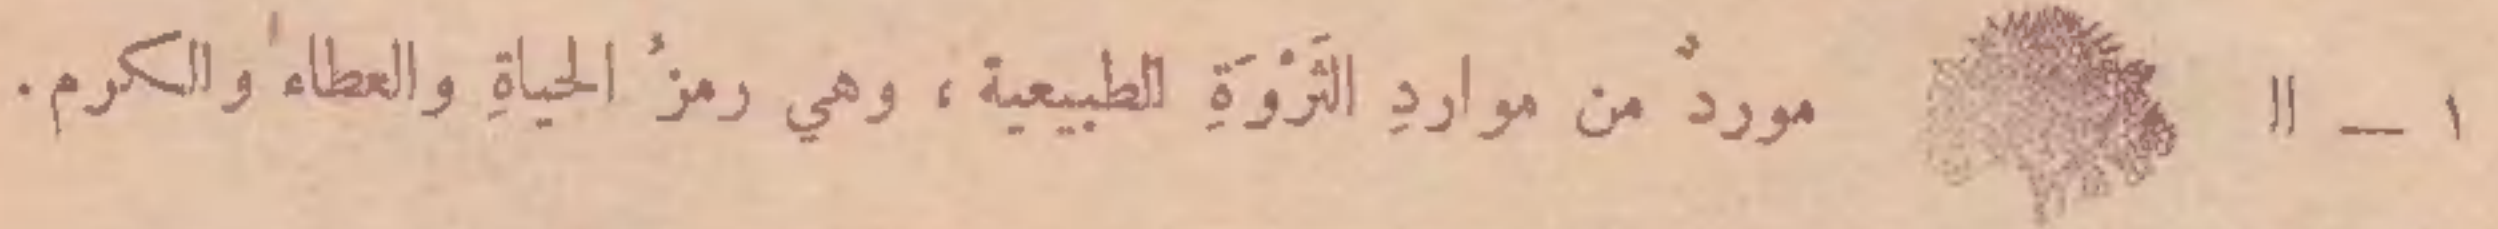 ١ — الـ موردٌ من مواردِ الثَرْوَةِ الطبيعية ، وهي رمزُ الحياةِ والعطاء والكرم .